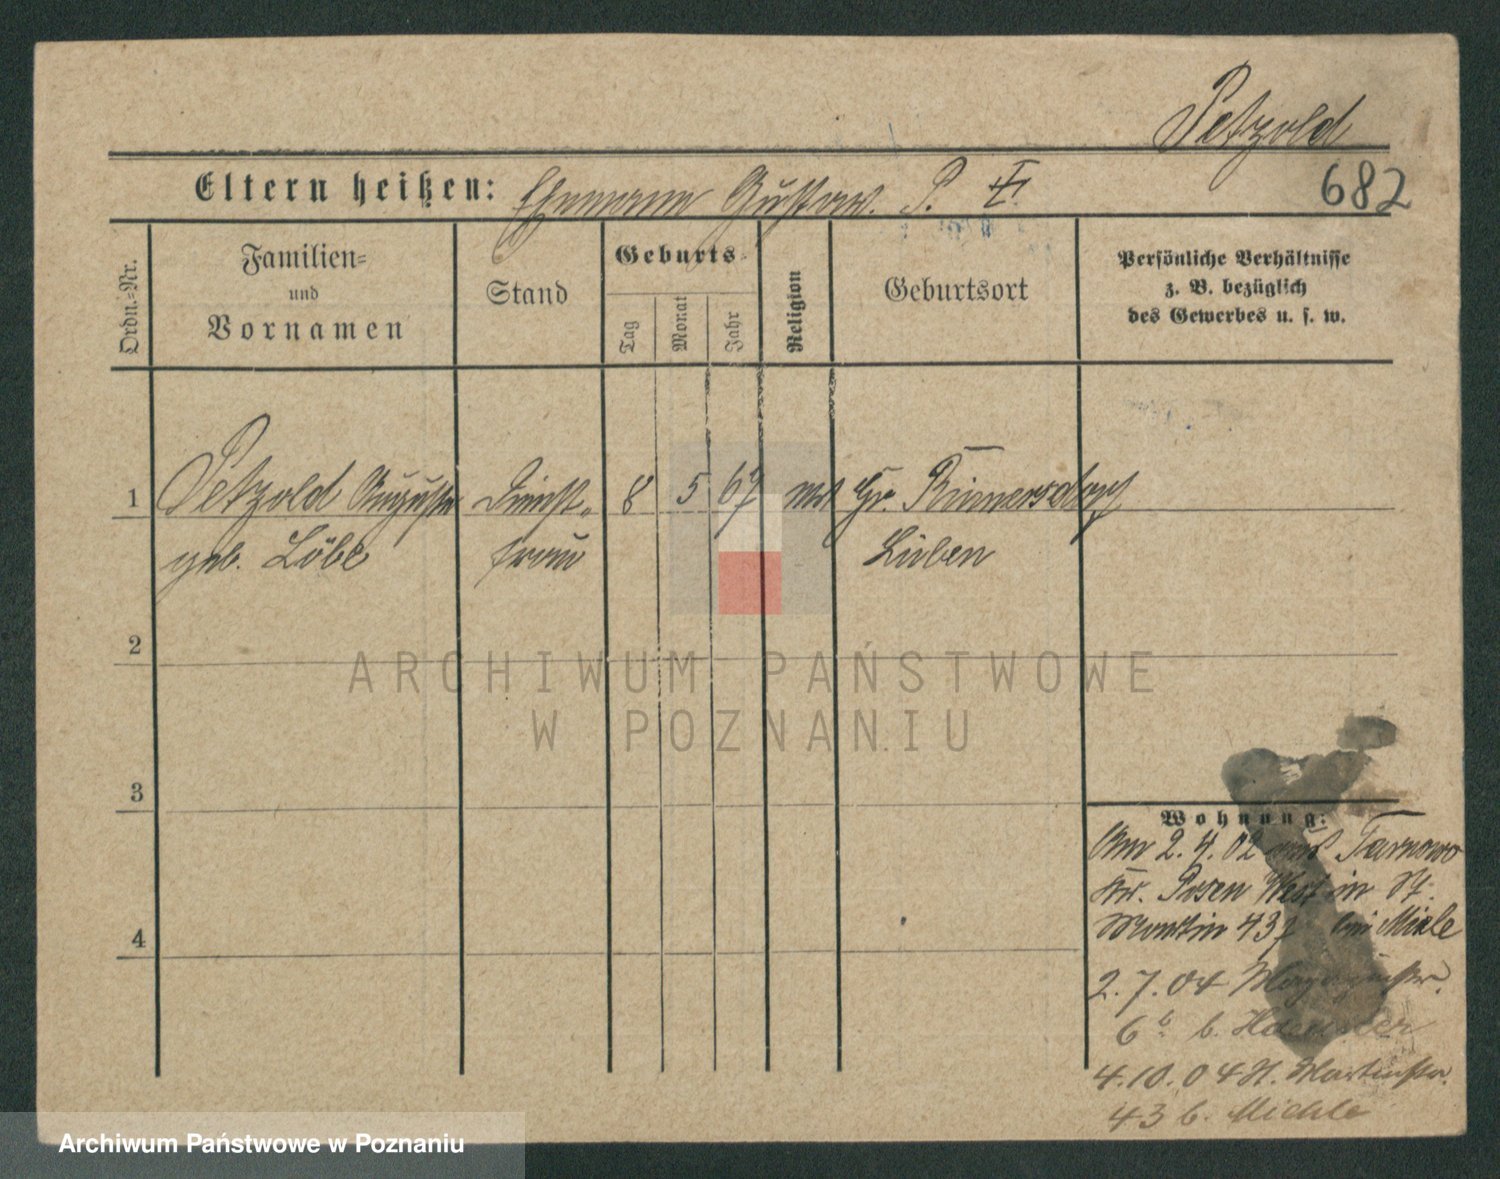 Petzold
682
Eltern heißen: Ehemann Gustav. P. †
Ordn.=Nr.
Familien=
und
Vornamen
Stand
Geburts=
Tag
Monat
Jahr
Religion
Geburtsort
Persönliche Verhältnisse
z. B. bezüglich
des Gewerbes u. s. w.
1 Petzold Auguste Dienst- 8 5 67 Gr. Rinnersdorf
geb. Löbe frau Lüben
2
3
4
Wohnung:
Am 2.4.02 aus Tarnowo
Kr. Posen West in St.
Martin 43 bei Michle
2.7.04
6 b.
4.10.04 St. Martinstr.
43 b. Michle
ARCHIWUM PAŃSTWOWE
W POZNANIU
Archiwum Państwowe w Poznaniu